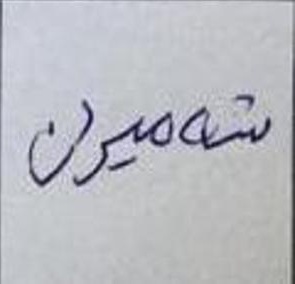 شەمیرن